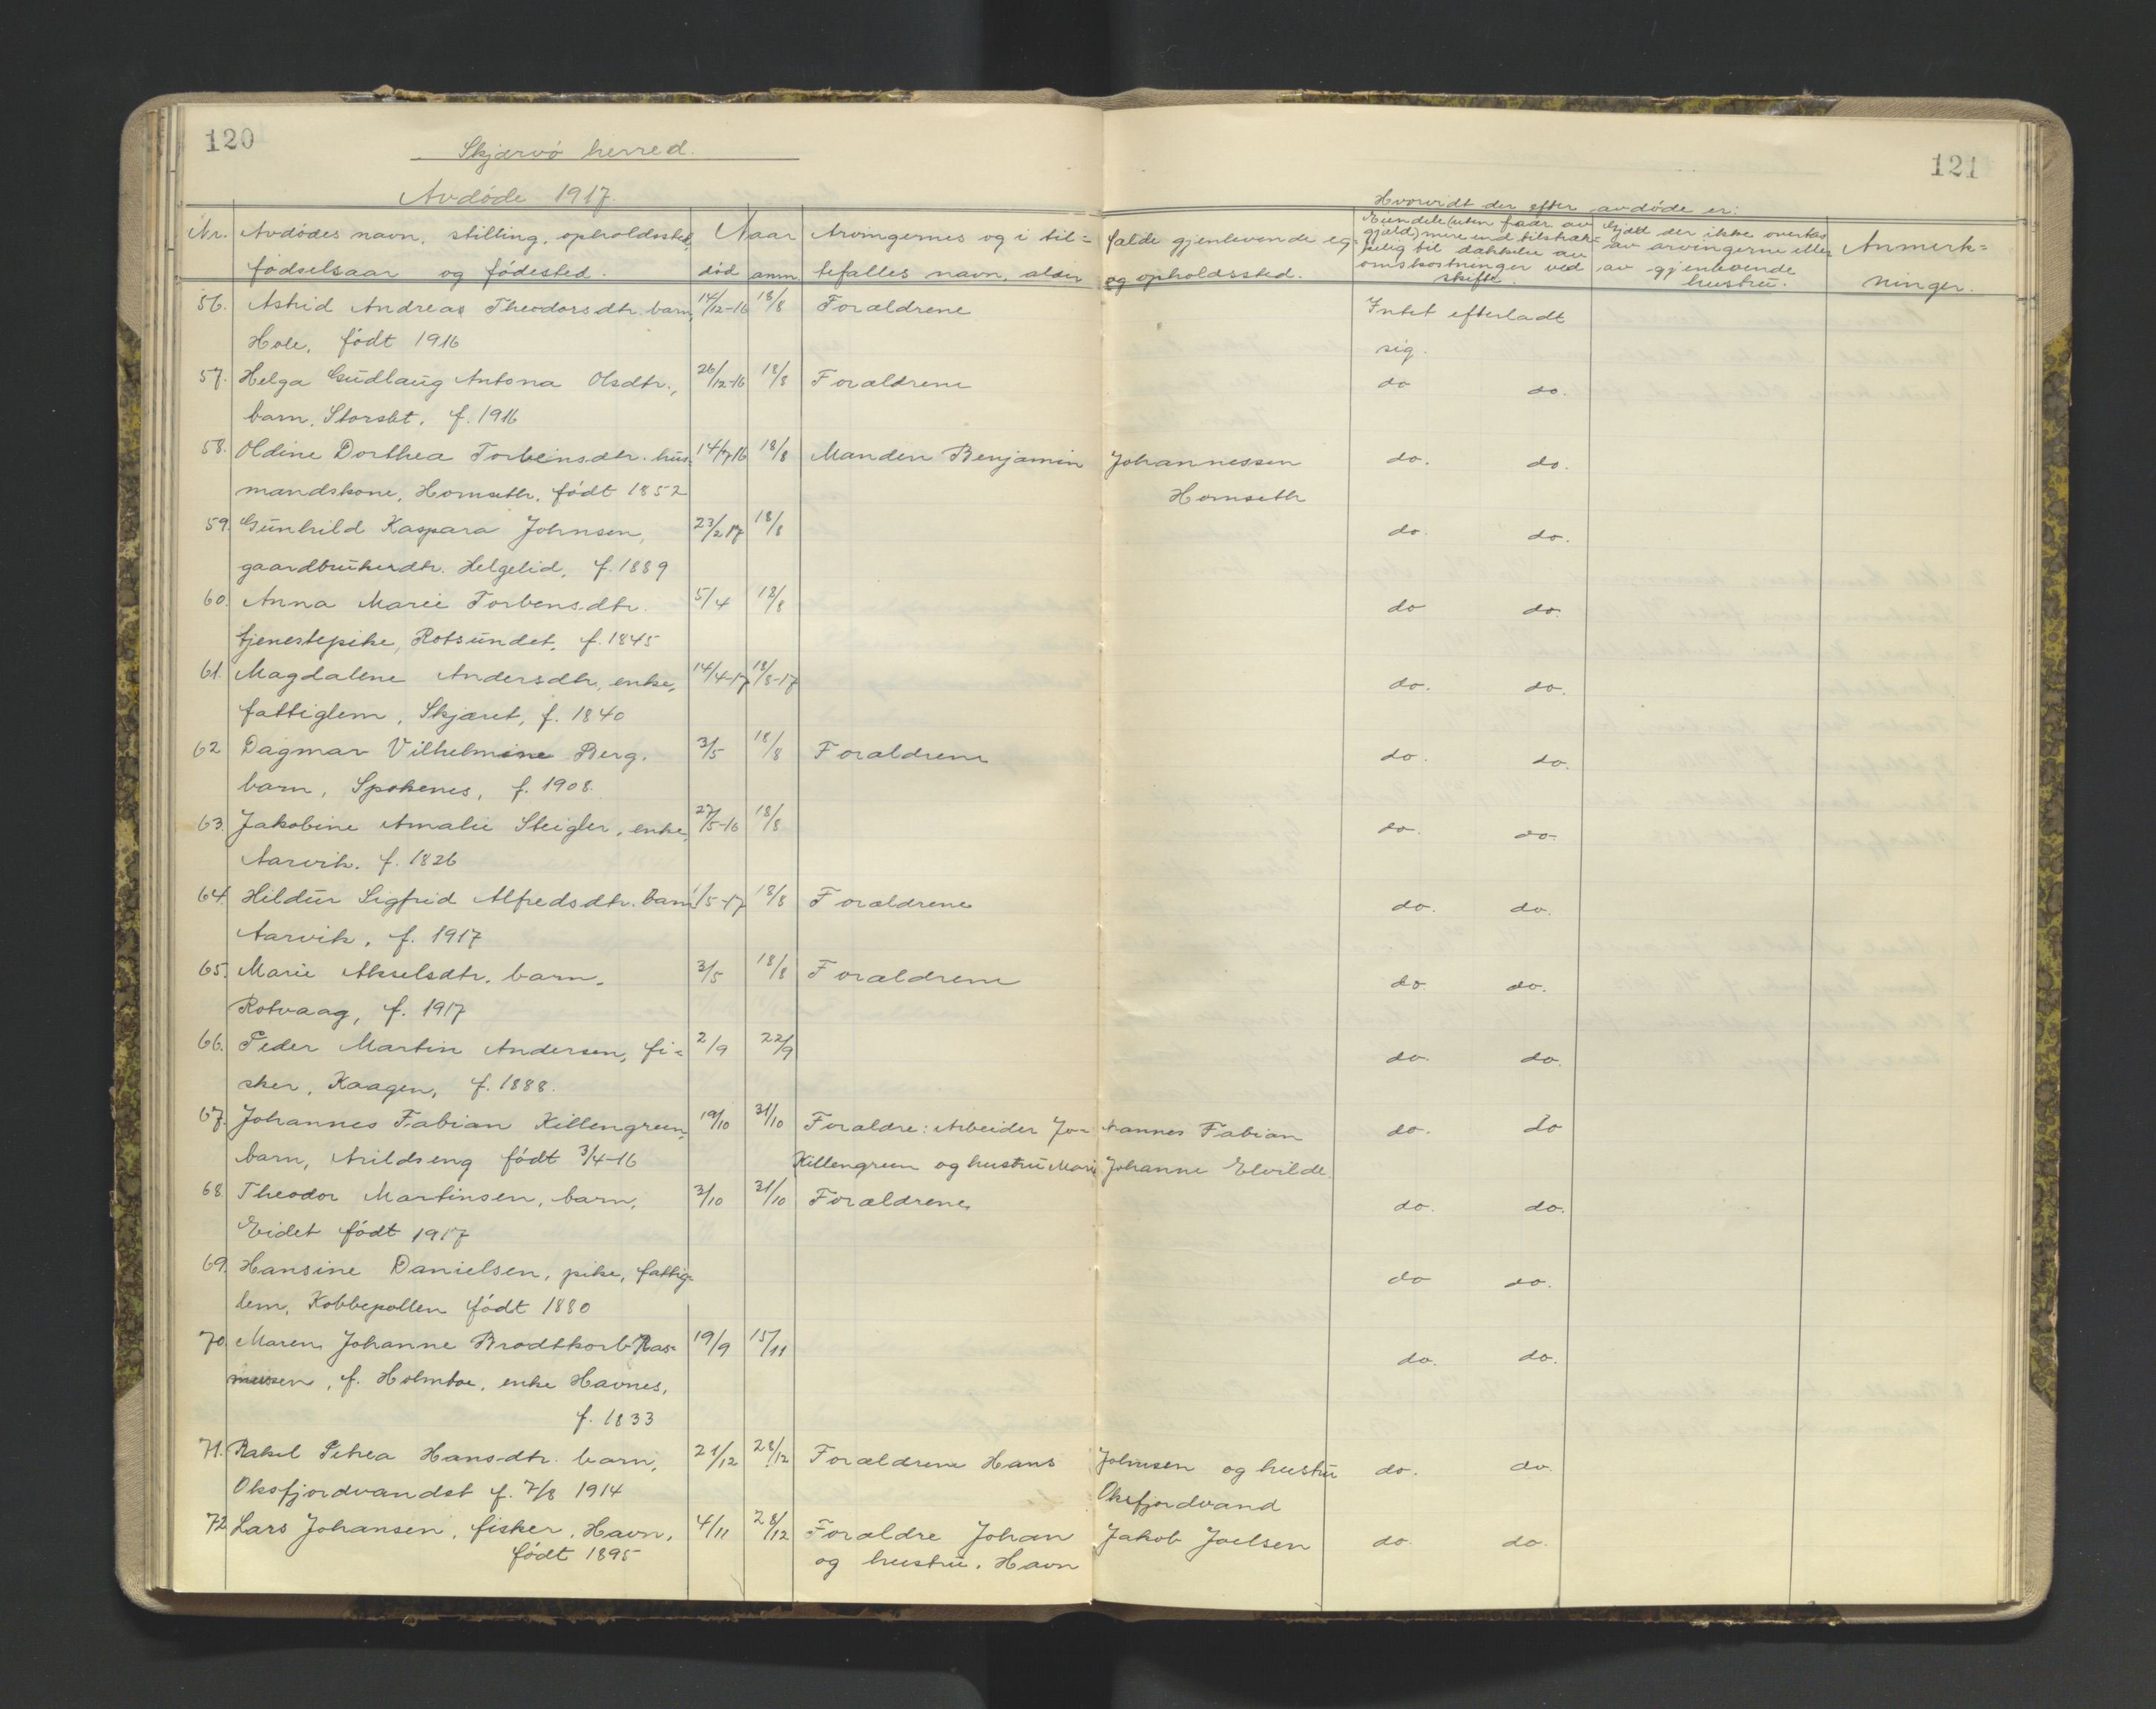 120
121
Skjærvö herred.
Avdöde 1917.
Hvorvidt der efter avdöde er:
Nr. Avdödes navn, stilling, opholdssted, Naar Arvingernes og i til- fælde gjenlevende eg-
födselsaar og födested. död anm tefælles navn, alder og opholdssted.
Eiendele (uten fradr. av
gjæld) mere end tilstræk-
kelig til dækkelse av
omskostninger ved
skifte.
Gjæld der ikke overtas
av arvingerne eller
av gjenlevende
hustru.
Anmerk-
ninger.
56. Astrid Andreas Theodorsdtr. barn, 14/12-16 18/8 Forældrene Intet efterladt
Hole, födt 1916 sig.
57. Helga Gudlaug Antona Olsdtr., 26/12-16 18/8 Forældrene do do.
barn, Storslet, f. 1916
58. Oldine Dorthea Torbeinsdtr. hus- 14/7 16 18/8 Manden Benjamin Johannessen do. do.
mandskone, Homseth, födt 1852 Homseth
59. Gunhild Kaspara Johnsen, 23/2 17 18/8 do. do.
gaardbrukerdtr. Helgelid, f. 1889
60. Anna Marie Torbensdtr. 5/4 18/8 do do.
tjenestepike, Rotsundet, f. 1845
61. Magdalene Andersdtr, enke, 14/4-17 18/8-17 do. do.
fattiglem, Skjæret, f. 1840
62 Dagmar Vilhelmine Berg. 3/5 18/8 Forældrene do. do.
barn, Spokenes, f. 1908.
63. Jakobine Amalie Steigler, enke, 27/5-16 18/8 do. do.
Aarvik. f. 1826
64. Hildur Sigfrid Alfredsdtr. barn 1/5-17 18/8 Forældrene do. do.
Aarvik, f. 1917
65. Marie Akselsdtr. barn. 3/5 18/8 Forældrene do. do.
Rotvaag, f. 1917
66. Peder Martin Andersen, fi- 2/9 22/9 do. do.
sker, Kaagen, f. 1888.
67. Johannes Fabian Killengreen, 19/10 31/10 Forældre: Arbeider Jo- hannes Fabian do. do
barn, Arildseng födt 3/4-16 Killengreen og hustru Marie Johanne Elvilde.
68. Theodor Martinsen, barn, 3/10 31/10 Forældrene do. do.
Eidet födt 1917
69. Hansine Danielsen, pike, fattig- do do.
lem, Kobbepollen födt 1880
70. Maren Johanne Brodtkorb Ras- 19/9 15/11 do. do.
mussen, f. Holmboe, enke Havnes,
f. 1833
71. Rakel Petrea Hansdtr. barn, 21/12 28/12 Forældrene Hans Johnsen og hustru do. do.
Oksfjordvandet f. 7/8 1914 Oksfjordvand
72 Lars Johansen, fisker, Havn, 4/11 28/12 Forældre Johan Jakob Joelsen do. do.
födt 1895 og hustru, Havn